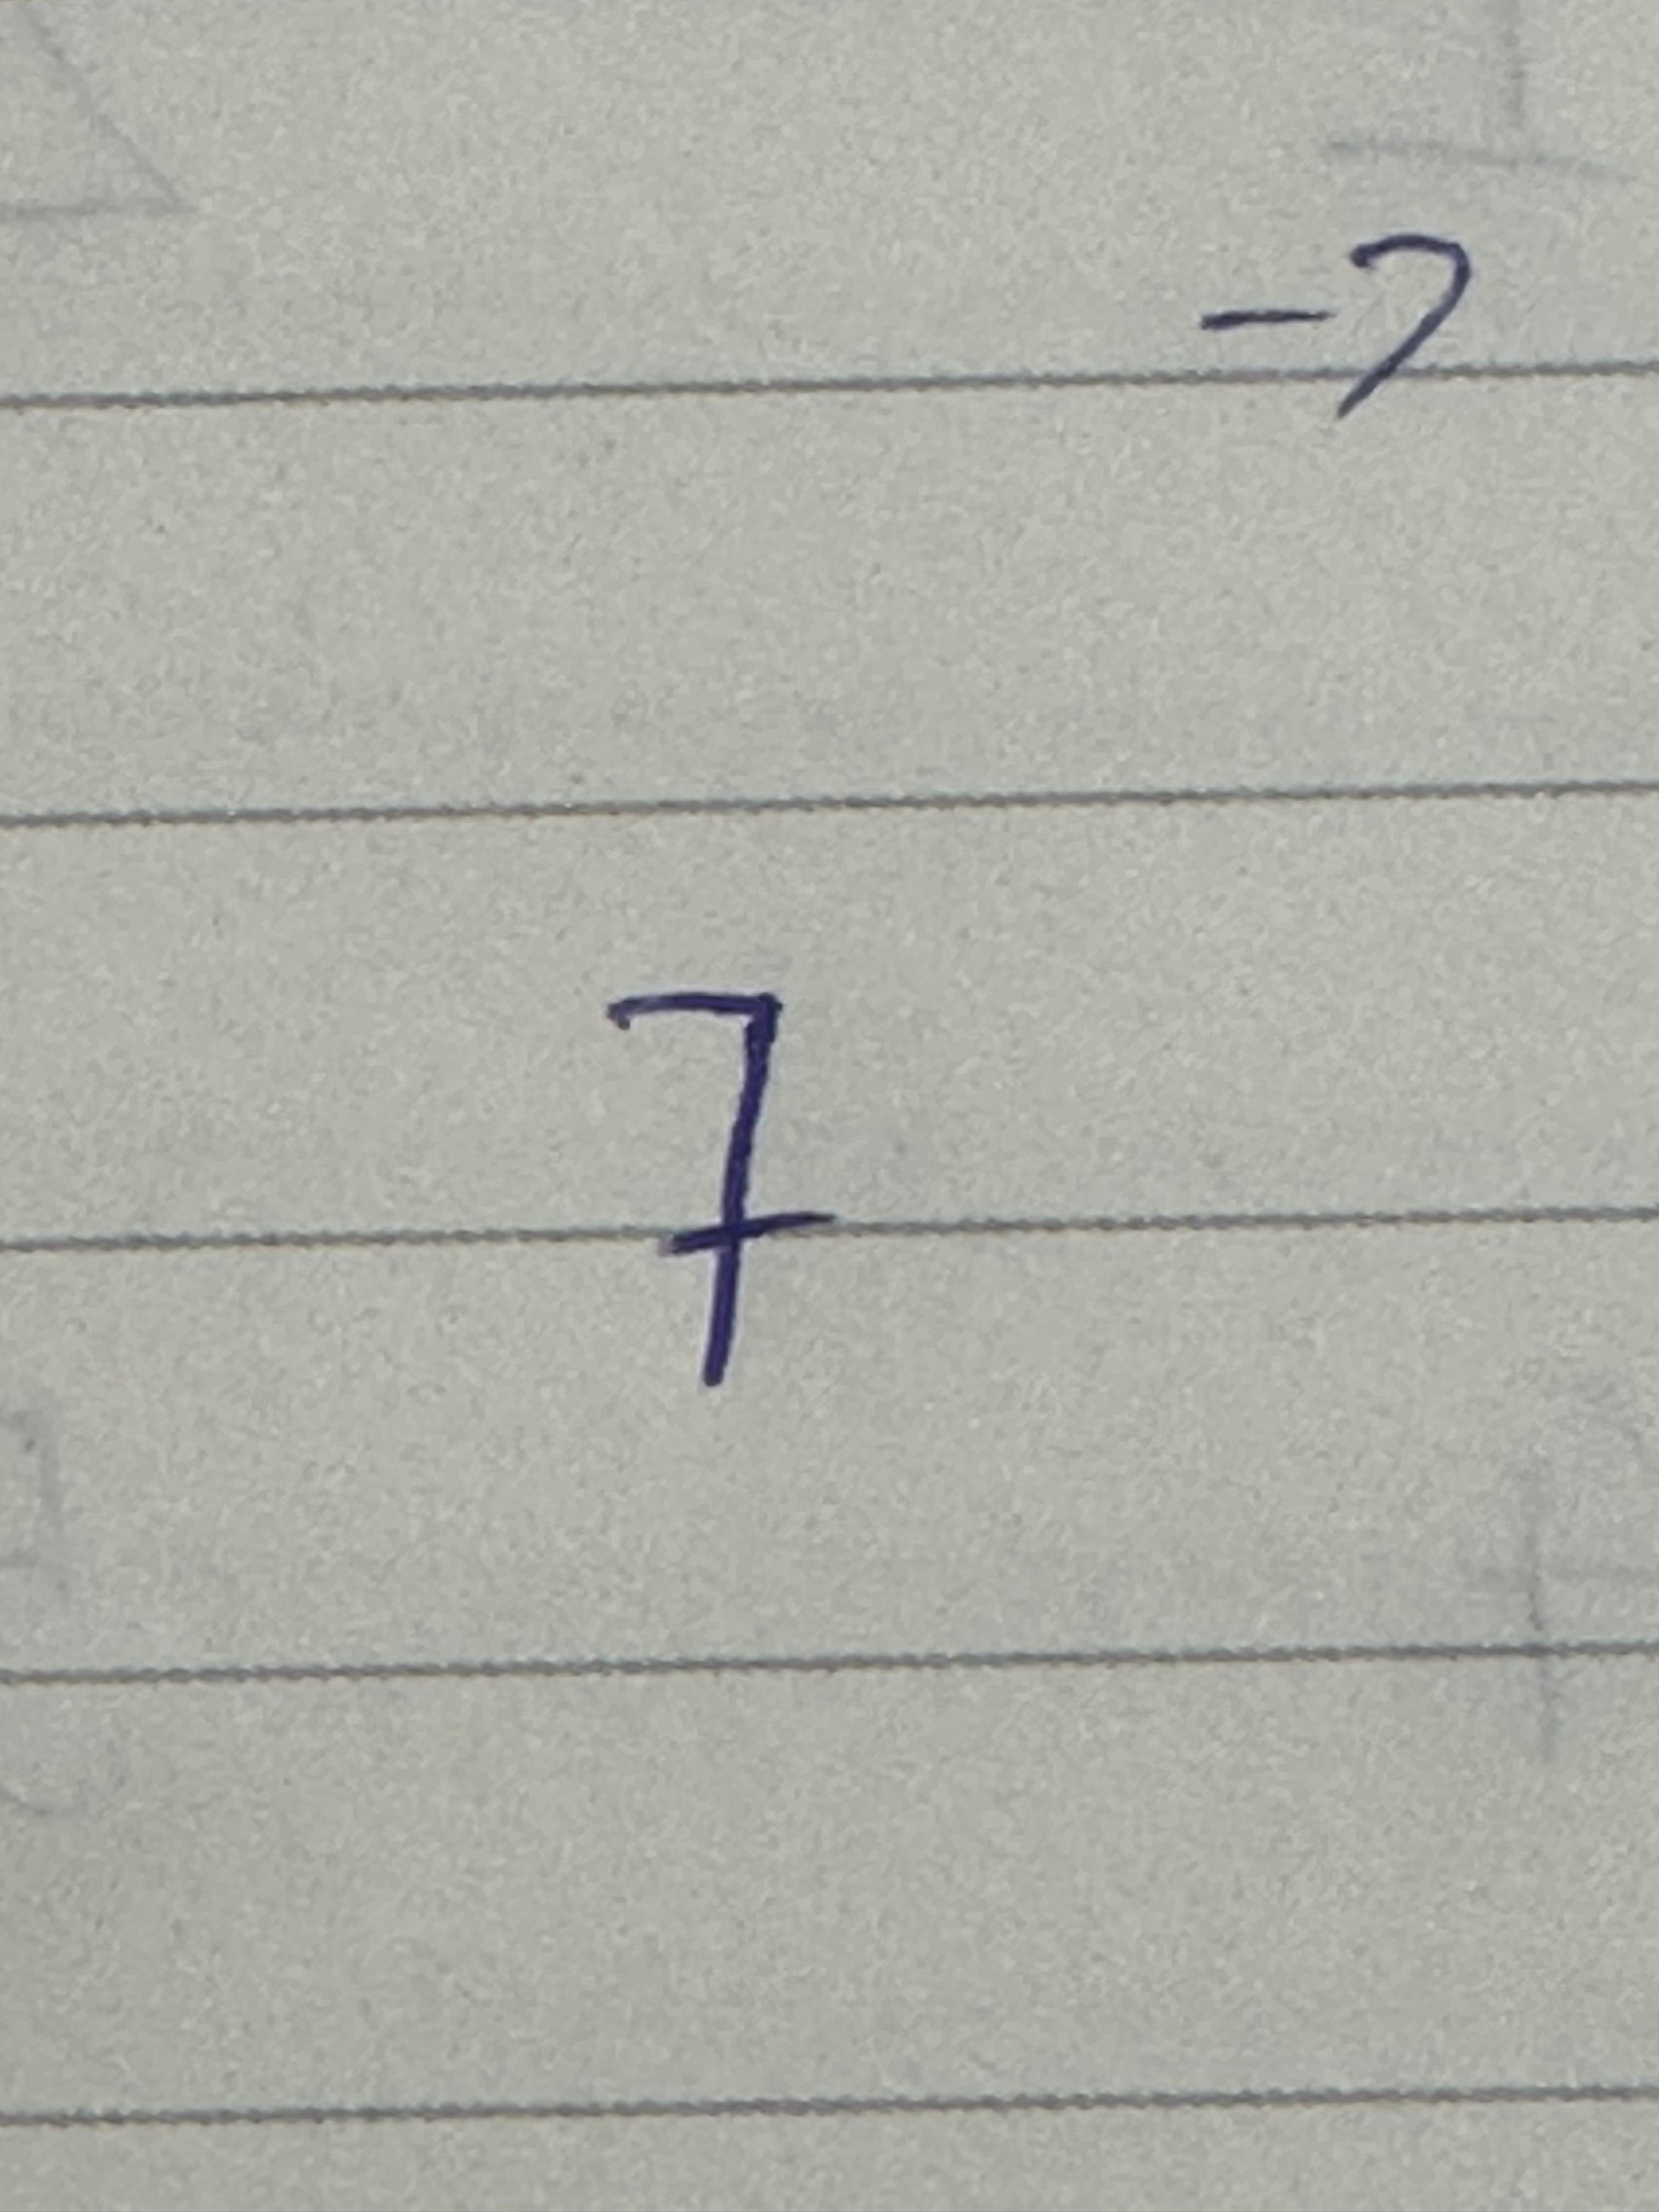 -7
7